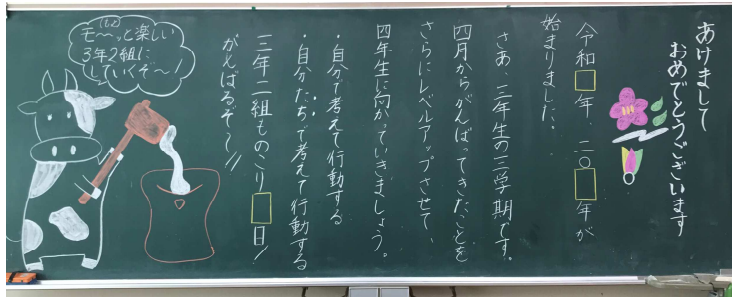 あけまして
おめでとうございます
令和□年、二〇□年が
始まりました。
さあ、三年生の三学期です。
四月からがんばってきたことを
さらにレベルアップさせて、
四年生に向かっていきましょう。
・自分で考えて行動する
・自分たちで考えて行動する
三年二組ものこり□日!
がんばるぞ〜!!
モ〜ッと楽しい
(もっと)
3年2組に
していくぞ〜!